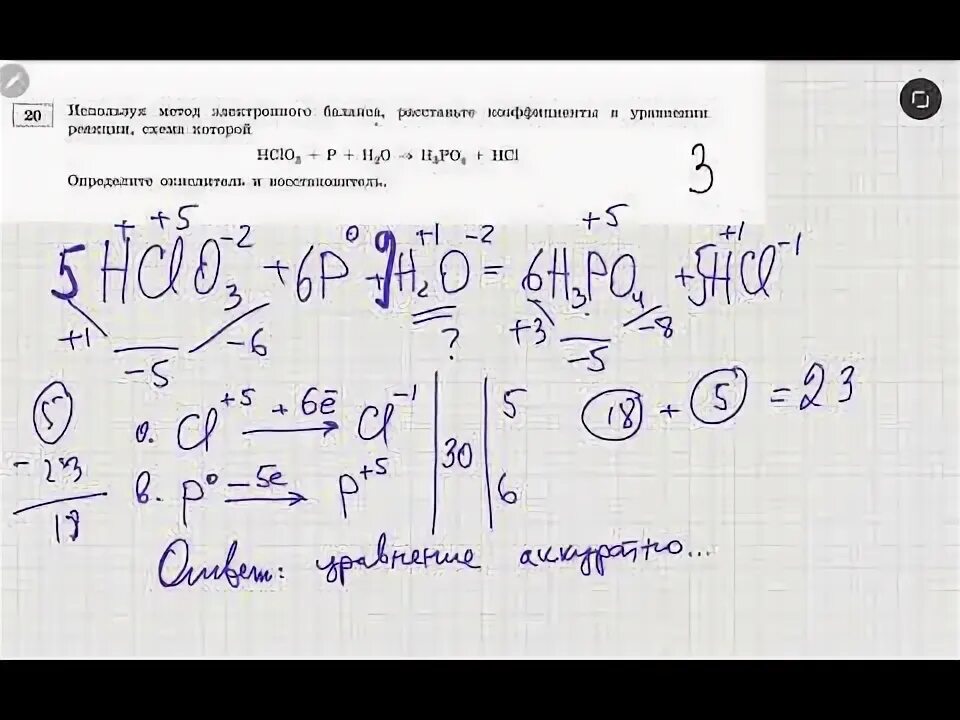 20 Используя метод электронного баланса, расставьте коэффициенты в уравнении
реакции, схема которой
HClO₃ + P + H₂O → H₃PO₄ + HCl
Определите окислитель и восстановитель.
3
+ +5 -2 0 +1 -2 +5 +1 -1
5HClO₃ + 6P + 9H₂O = 6H₃PO₄ + 5HCl
+1 -5 -6 ? +3 -5 -8
5 о. Cl⁺⁵ +6ē → Cl⁻¹ | 30 | 5 18 + 5 = 23
- 23
18 в. P⁰ -5ē → P⁺⁵ 6
Ответ: уравнение аккуратно...